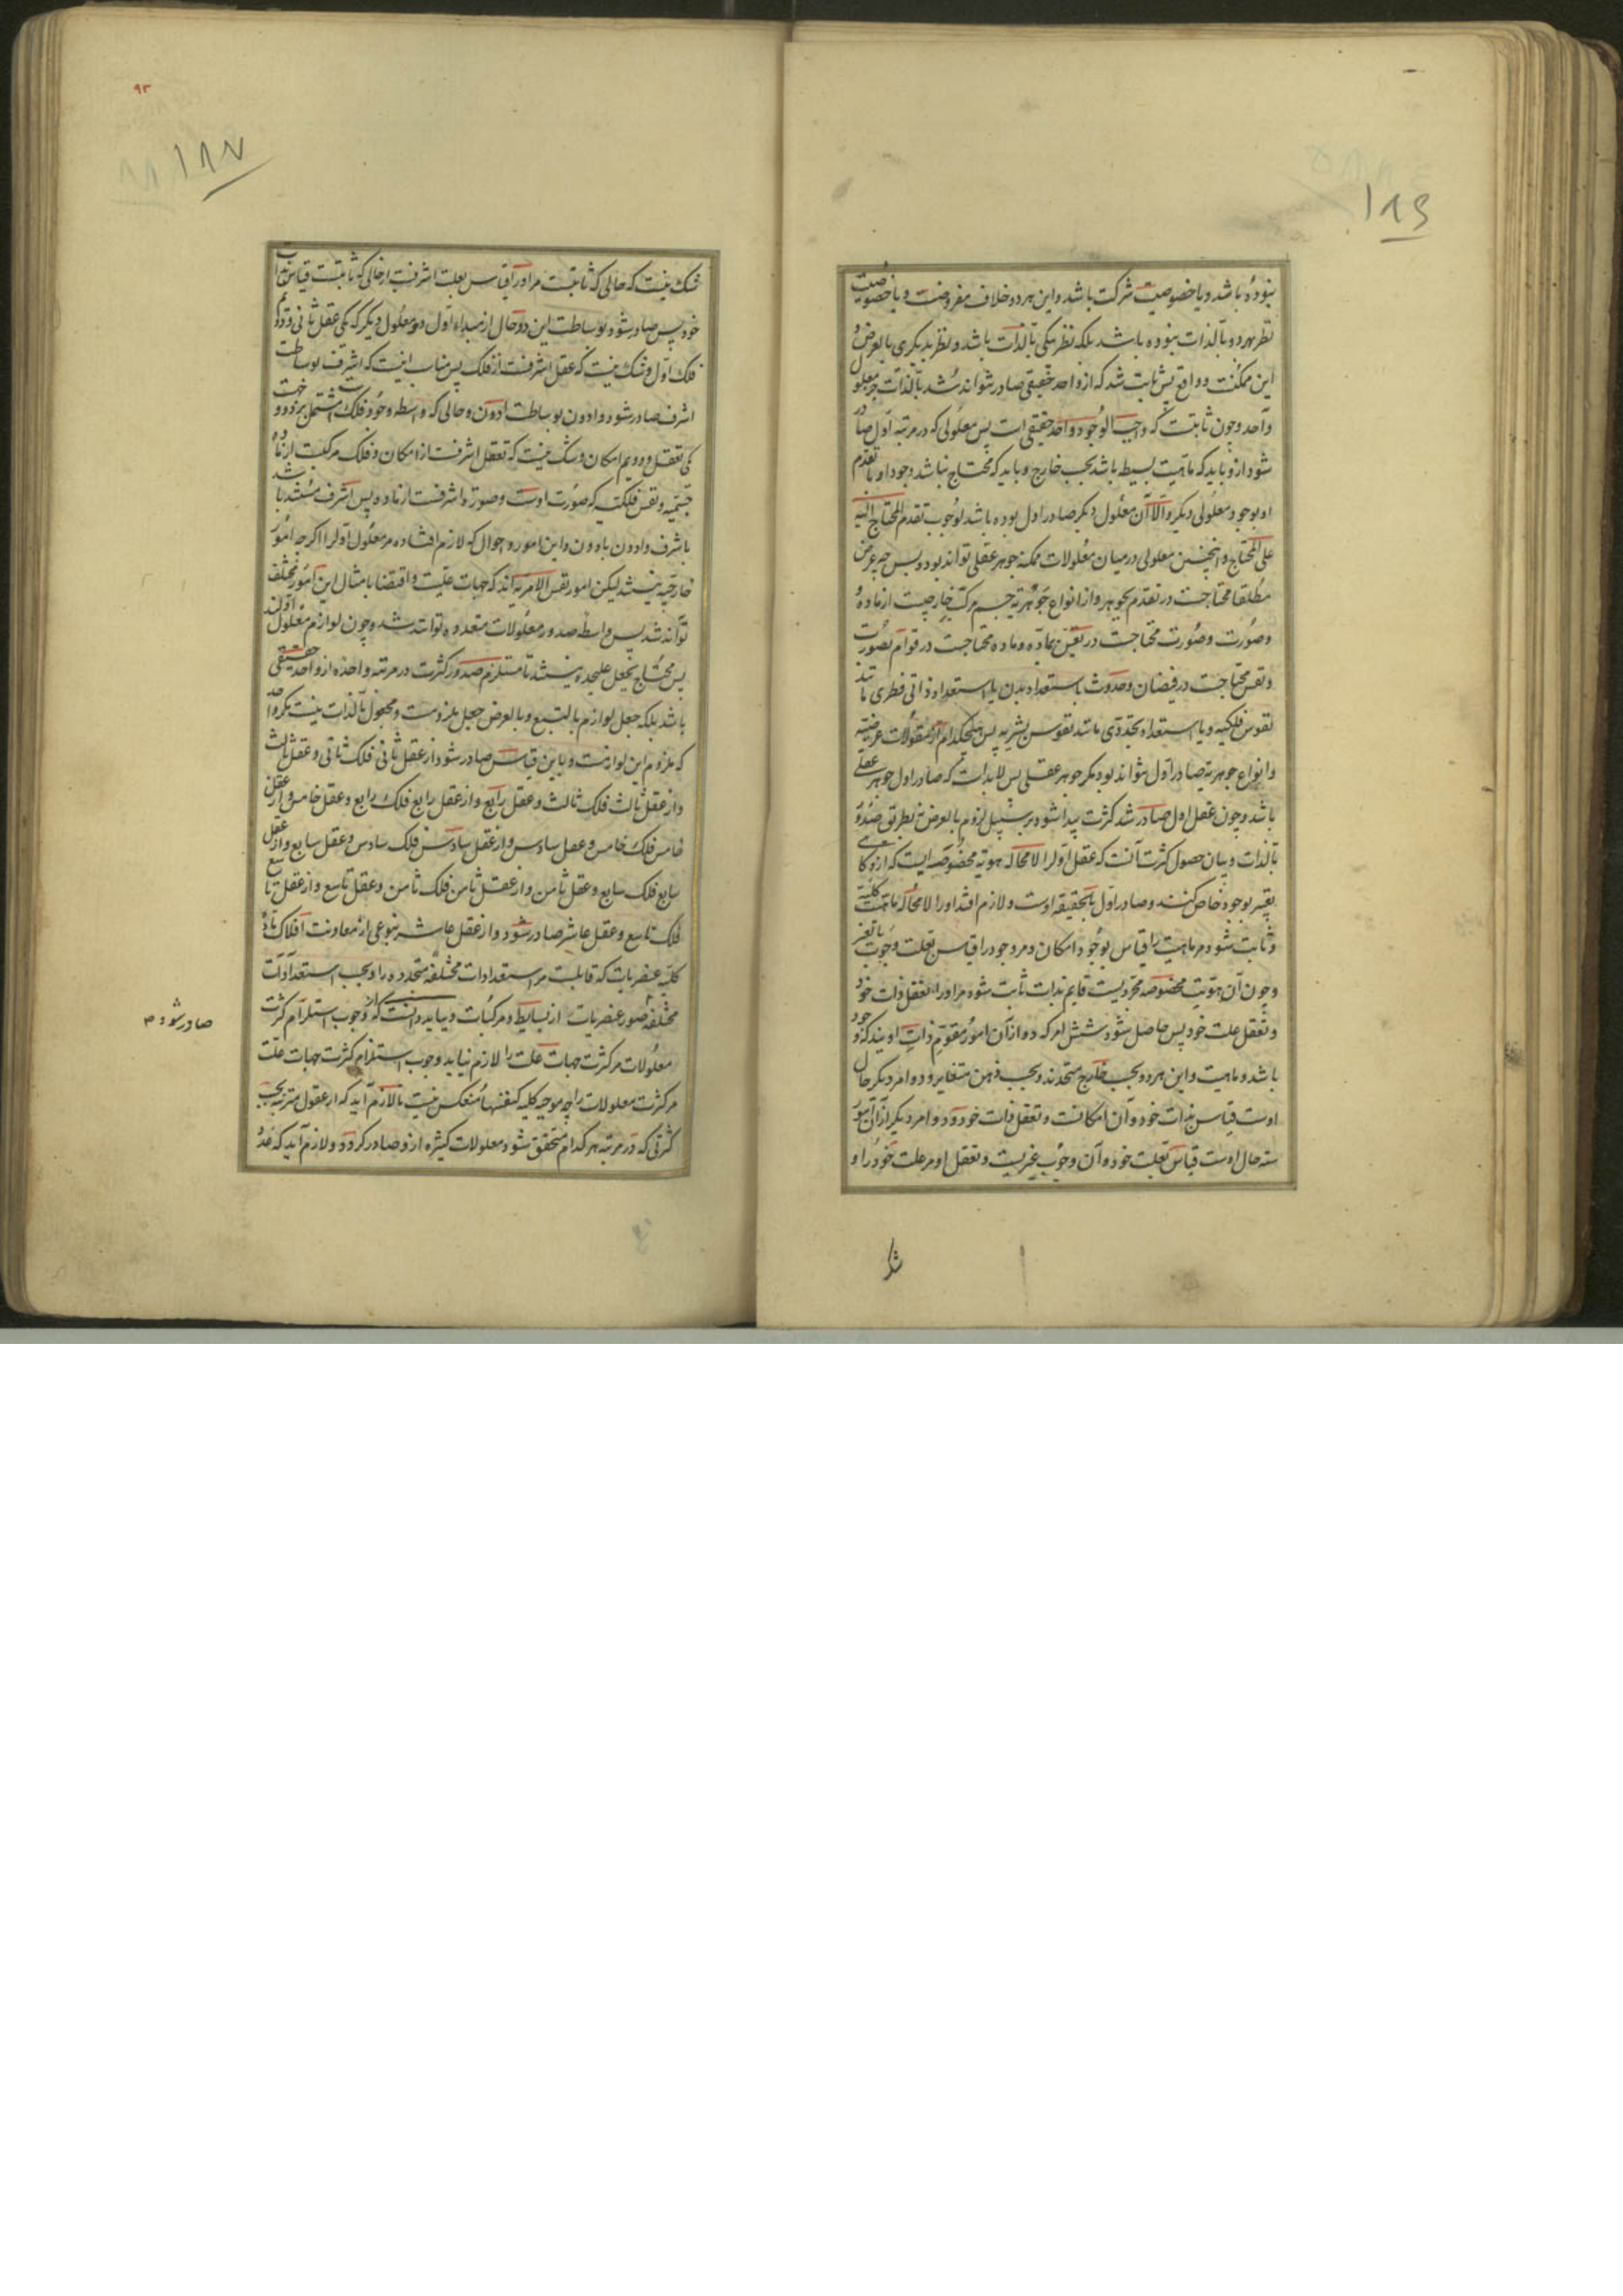 ١٨٦
نبوده باشد و یا خصوصیت شرکت باشد و این هر دو خلاف مفروضست و یا خصوصیت
نظر بهر دو بالذات نبوده باشد بلکه نظر بیکی بالذات باشد و نظر بدیگری بالعرض و
این ممکنست و واقع پس ثابت شد که از واحد حقیقی صادر نتواند شد بالذات جز معلول
واحد و چون ثابتست که واجب الوجود واحد حقیقی است پس معلولی که در مرتبه اول صادر
شود ازو باید که ماهیت بسیط باشد بحسب خارج و باید که محتاج نباشد وجود او بتقدم
او بوجود معلولی دیگر و الا آن معلول دیگر صادر اول بوده باشد لوجوب تقدم المحتاج الیه
علی المحتاج و اینچنین معلولی در میان معلولات ممکنه جوهر عقلی تواند بود و بس چه عرض
مطلقا محتاجست در تقدم بجوهر و از انواع جوهریه جسم مرکب خارجیست از ماده
و صورت و صورت محتاجست در تعین بماده و ماده محتاجست در قوام بصورت
و نفس محتاجست در فیضان و حدوث باستعداد بدن یا استعداد ذاتی فطری مانند
نفوس فلکیه و یا استعداد تجددی مانند نفوس بشریه پس هیچکدام از مقولات عرضیه
و انواع جوهریه صادر اول نتواند بود مگر جوهر عقلی پس لابد است که صادر اول جوهر عقلی
باشد و چون عقل اول صادر شد کثرت پیدا شود بر سبیل لزوم بالعرض نه بطریق صدور
بالذات و بیان حصول کثرت آنست که عقل اول را لامحاله هویه مخصوصه ایست که ازو گاهی
تعبیر بوجود خاص کنند و صادر اول بالحقیقه اوست و لازم افتد او را لامحاله ماهیت کلیه
و ثابت شود مر ماهیت را قیاس بوجود امکان و مر وجود را قیاس بعلت وجوب بالغیر
و چون آن هویت مخصوصه مجردیست قایم بذات ثابت شود مر او را تعقل ذات خود
و تعقل علت خود پس حاصل شود شش امر که دو از آن امور مقوم ذات اویند که وجود
باشد و ماهیت و این هر دو بحسب خارج متحدند و بحسب ذهن متغایر و دو امر دیگر حال
اوست قیاس بذات خود و آن امکانست و تعقل ذات خود و دو امر دیگر از آن امور
سته حال اوست قیاس بعلت خود و آن وجوب غیریست و تعقل او مر علت خود را و
شک
٩٣
١٨٧
شک نیست که حالی که ثابتست مر او را قیاس بعلت اشرفست از حالی که ثابتست قیاس بذات
خود پس صادر شود بوساطت این دو حال از مبداء اول دو معلول دیگر که یکی عقل ثانی و دوم
فلک اول و شک نیست که عقل اشرفست از فلک پس مناسب اینست که اشرف بوساطت
اشرف صادر شود و ادون بوساطت ادون و حالی که واسطه وجود فلک است مشتمل بر دو جهت
یکی تعقل و دویم امکان و شک نیست که تعقل اشرفست از امکان و فلک مرکبست از ماده
جسمیه و نفس فلکیه که صورت اوست و صورة اشرفست از ماده پس اشرف مستند باشد
باشرف و ادون بادون و این امور و احوال که لازم افتاده مر معلول اول را اگر چه امور
خارجیه نیستند لیکن امور نفس الامریه اند که جهات علیت و اقتضا بامثال این امور مختلف
تواند شد پس واسطه صدور معلولات متعدده توانند شد و چون لوازم معلول اولند
پس محتاج بجعل علیحده نیستند تا مستلزم صدور کثرت در مرتبه واحده از واحد حقیقی
باشد بلکه جعل لوازم بالتبع و بالعرض جعل ملزومست و مجعول بالذات نیست مگر واحد
که ملزوم این لوازمست و باین قیاس صادر شود از عقل ثانی فلک ثانی و عقل ثالث
و از عقل ثالث فلک ثالث و عقل رابع و از عقل رابع فلک رابع و عقل خامس و از عقل
خامس فلک خامس و عقل سادس و از عقل سادس فلک سادس و عقل سابع و از عقل
سابع فلک سابع و عقل ثامن و از عقل ثامن فلک ثامن و عقل تاسع و از عقل تاسع
فلک تاسع و عقل عاشر صادر شود و از عقل عاشر بنوعی از معاونت افلاک ماده
کلیه عنصریات که قابلست مر استعدادات مختلفه متجدده را و بحسب استعدادات
مختلفه صور عنصریات از بسایط و مرکبات و بباید دانست که از وجوب استلزام کثرت
صادر شود م
معلولات مر کثرت جهات علت را لازم نیاید وجوب استلزام کثرت جهات علت
مر کثرت معلولات را چه موجبه کلیه کنفسها منعکس نیست تا لازم آید که از عقول مترتبه بحسب
کثرتی که در مرتبه هر کدام متحقق شود معلولات کثیره ازو صادر گردد و لازم آید که عدد